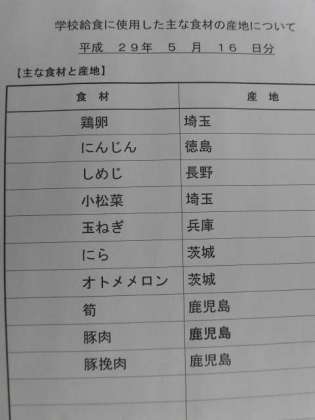 学校給食に使用した主な食材の産地について
平成 29年 5 月 16 日分
【主な食材と産地】
食 材 産 地
鶏卵 埼玉
にんじん 徳島
しめじ 長野
小松菜 埼玉
玉ねぎ 兵庫
にら 茨城
オトメメロン 茨城
筍 鹿児島
豚肉 鹿児島
豚挽肉 鹿児島